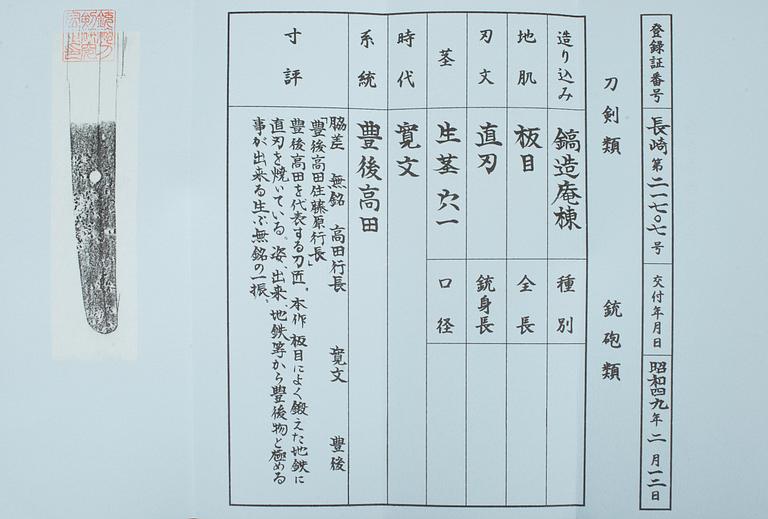 登録証番号 長崎 第二一七〇七号 交付年月日 昭和四九年二月一二日
刀剣類 銃砲類
造り込み 鎬造庵棟 種別
地肌 板目 全長
刃文 直刃 銃身長
茎 生茎 穴一 口径
時代 寛文
系統 豊後高田
寸評
脇差 無銘 高田行長 寛文 豊後
「豊後高田住藤原行長」
豊後高田を代表する刀匠。本作、板目によく鍛えた地鉄に
直刃を焼いている。姿、出来、地鉄等から豊後物と極める
事が出来る生ぶ無銘の一振。